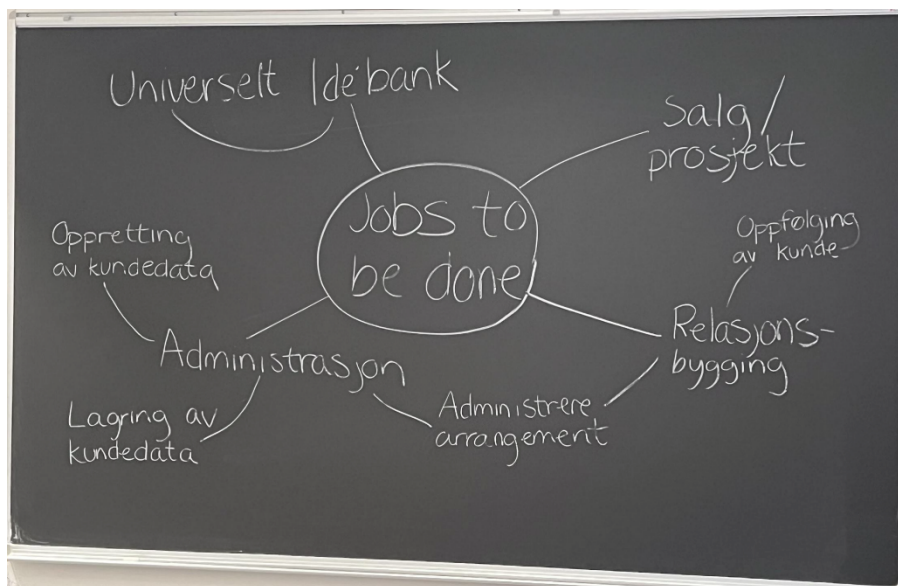 Universelt Idébank
Salg/
prosjekt
Jobs to
be done
Oppretting
av kundedata
Oppfølging
av kunde
Administrasjon
Relasjons-
bygging
Lagring av
kundedata
Administrere
arrangement